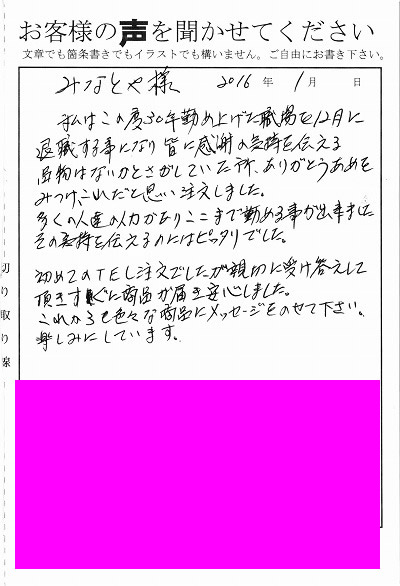 お客様の声を聞かせてください
文章でも箇条書きでもイラストでも構いません。ご自由にお書き下さい。
みなとや様 2016年 1月 日
私はこの度30年勤め上げた職場を12月に
退職する事になり皆に感謝の気持を伝える
品物はないかとさがしていた所、ありがとうあめを
みつけ、これだと思い注文しました。
多くの人達の力がありここまで勤める事が出来ました
その気持を伝えるのにはピッタリでした。
初めてのTEL注文でしたが親切に受け答えして
頂きすぐに商品が届き安心しました。
これからも色々な商品にメッセージをのせて下さい。
楽しみにしています。
切り取り線